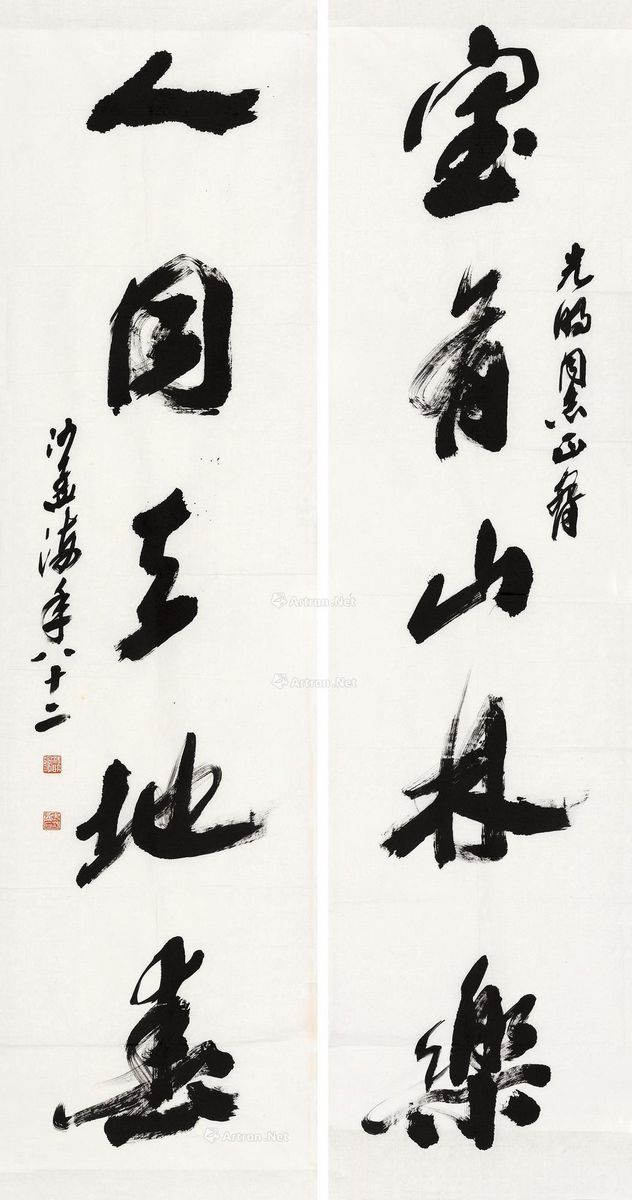 室有山林樂
光明同志正腕
人同天地春
沙孟海年八十二
Artron.Net
Artron.Net
Artron.Net